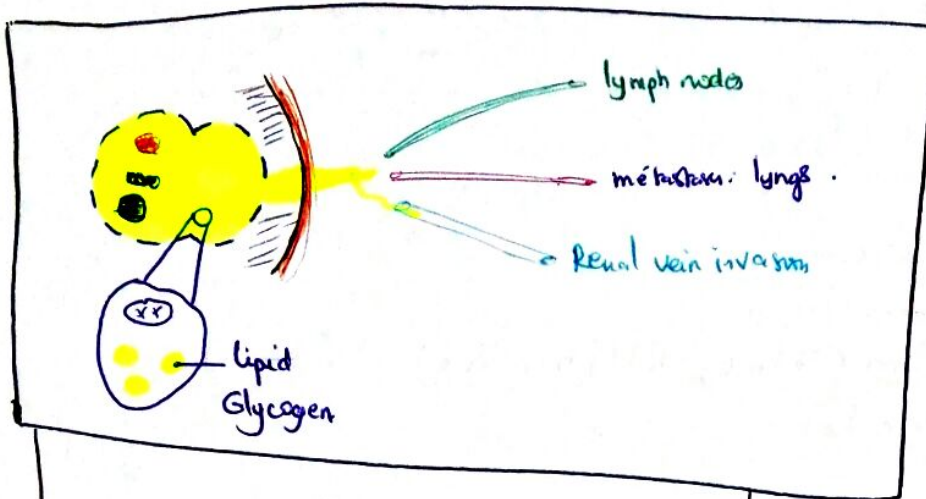 lymph nodes
métastasis: lyngs.
Renal vein invasion
xx
lipid
Glycogen